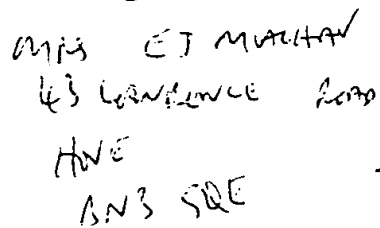 MRS EJ
43 LAWRENCE ROAD
HOVE
BN3 5QE